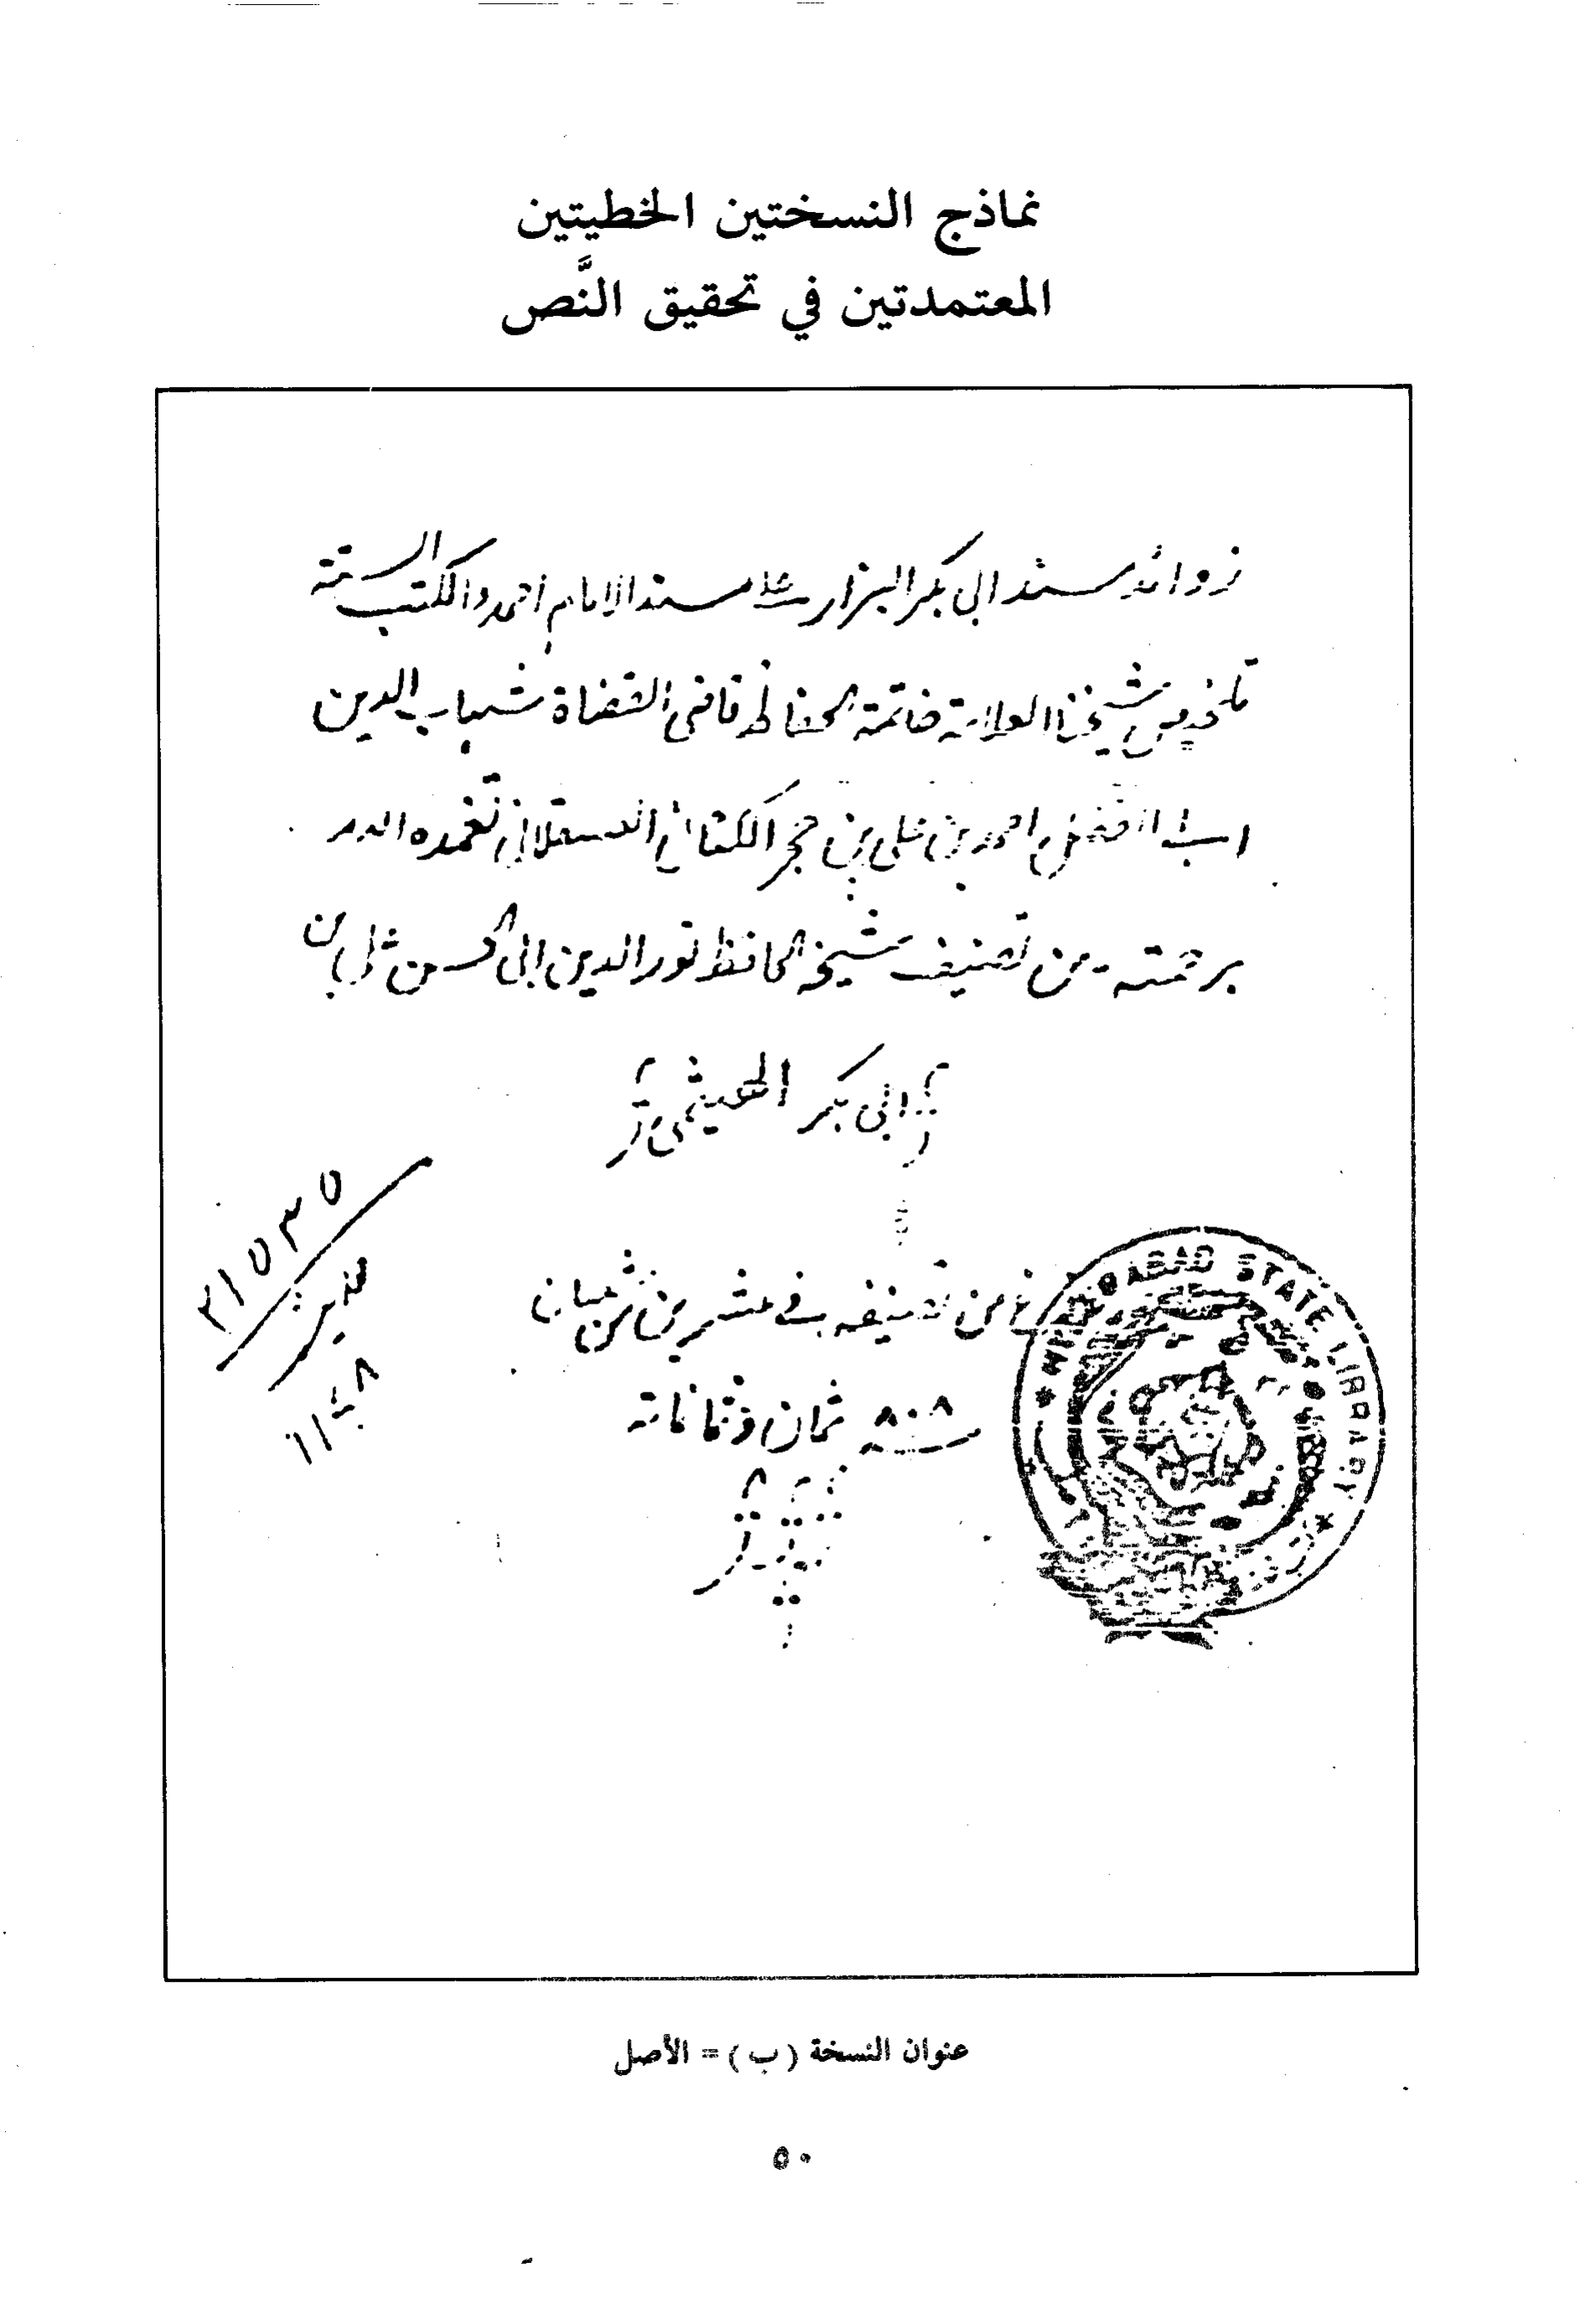 نماذج النسختين الخطيتين
المعتمدتين في تحقيق النَّص
زوائد مسند ابي بكر البزار على مسند الامام احمد والكتب الستة
تلخيص شيخنا العلامة خاتمة الحفاظ قاضى القضاة شهاب الدين
ابى الفضل احمد بن على بن حجر الكنانى العسقلانى تغمده الله
برحمته من تصنيف شيخه الحافظ نور الدين ابى الحسن على بن
ابى بكر الهيثمى
من تصنيفه فى عشرين شعبان
سنة ٨٠٨ ثمان وثمانمائة
٢١٥٣٥
HYDERABAD STATE LIBRARY
عنوان النسخة (ب) = الأصل
٥٠